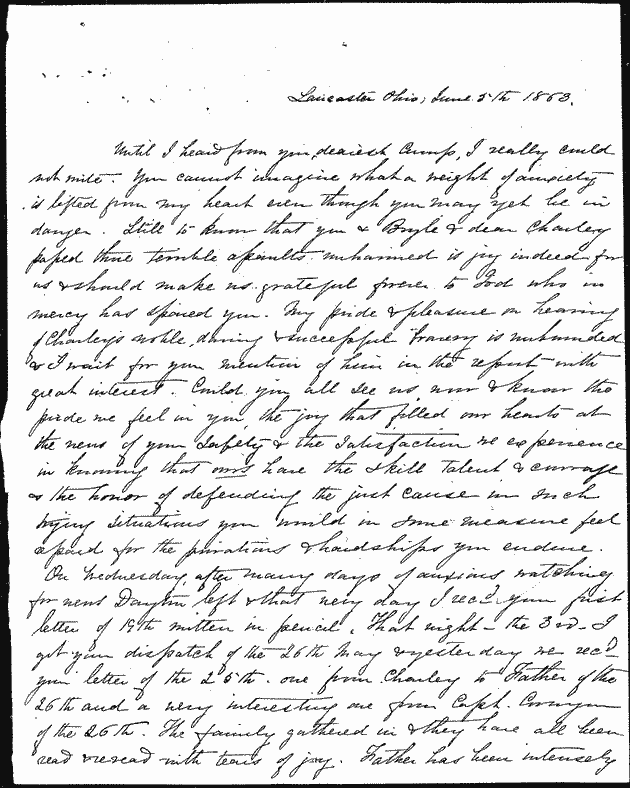 Lancaster Ohio, June 5th 1863.
Until I heard from you, dearest Cump, I really could
not write. You cannot imagine what a weight of anxiety
is lifted from my heart even though you may yet be in
danger. Still to know that you & Boyle & dear Charley
passed three terrible assaults unharmed is joy indeed for
us & should make us grateful forever to God who in
mercy has spared you. My pride & pleasure on hearing
of Charley's noble, daring & successful bravery is unbounded
& I wait for your mention of him in the report with
great interest. Could you all see us now & know the
pride we feel in you, the joy that filled our hearts at
the news of your safety & the satisfaction we experience
in knowing that ours have the skill talent & courage
& the honor of defending the just cause in such
trying situations you would in some measure feel
repaid for the privations & hardships you endure.
On Wednesday, after many days of anxious watching
for news Dayton left & that very day I recd your first
letter of 19th written in pencil. That night - the 3rd - I
got your dispatch of the 26th May & yesterday we recd
your letter of the 25th. one from Charley to Father of the
26th and a very interesting one from Capt.
of the 26th. The family gathered in & they have all been
read & reread with tears of joy. Father has been intensely